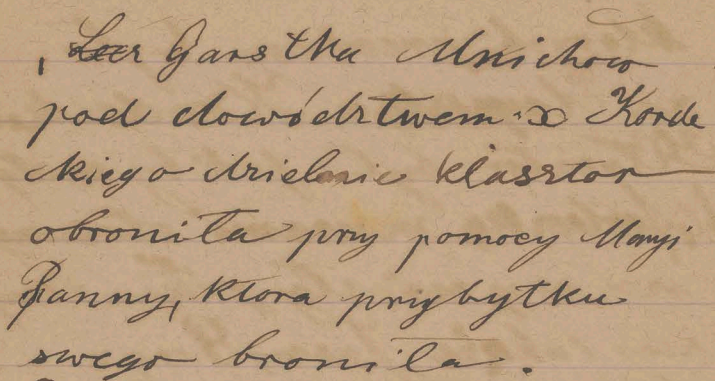 , Lecz Garstka Mnichow
pod dowództwem x Korde
ckiego dzielnie klasztor
obroniła przy pomocy Maryi
Panny, ktora przybytku
swego broniła.